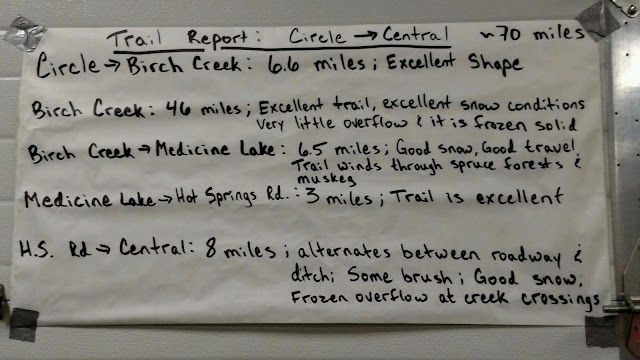 Trail Report: Circle → Central ~70 miles
Circle → Birch Creek: 6.6 miles; Excellent Shape
Birch Creek: 46 miles; Excellent trail, excellent snow conditions
Very little overflow & it is frozen solid
Birch Creek → Medicine Lake: 6.5 miles; Good snow, Good travel,
Trail winds through spruce forests &
muskeg
Medicine Lake → Hot Springs Rd.: 3 miles; Trail is excellent
H.S. Rd → Central: 8 miles; alternates between roadway &
ditch; Some brush; Good snow;
Frozen overflow at creek crossings